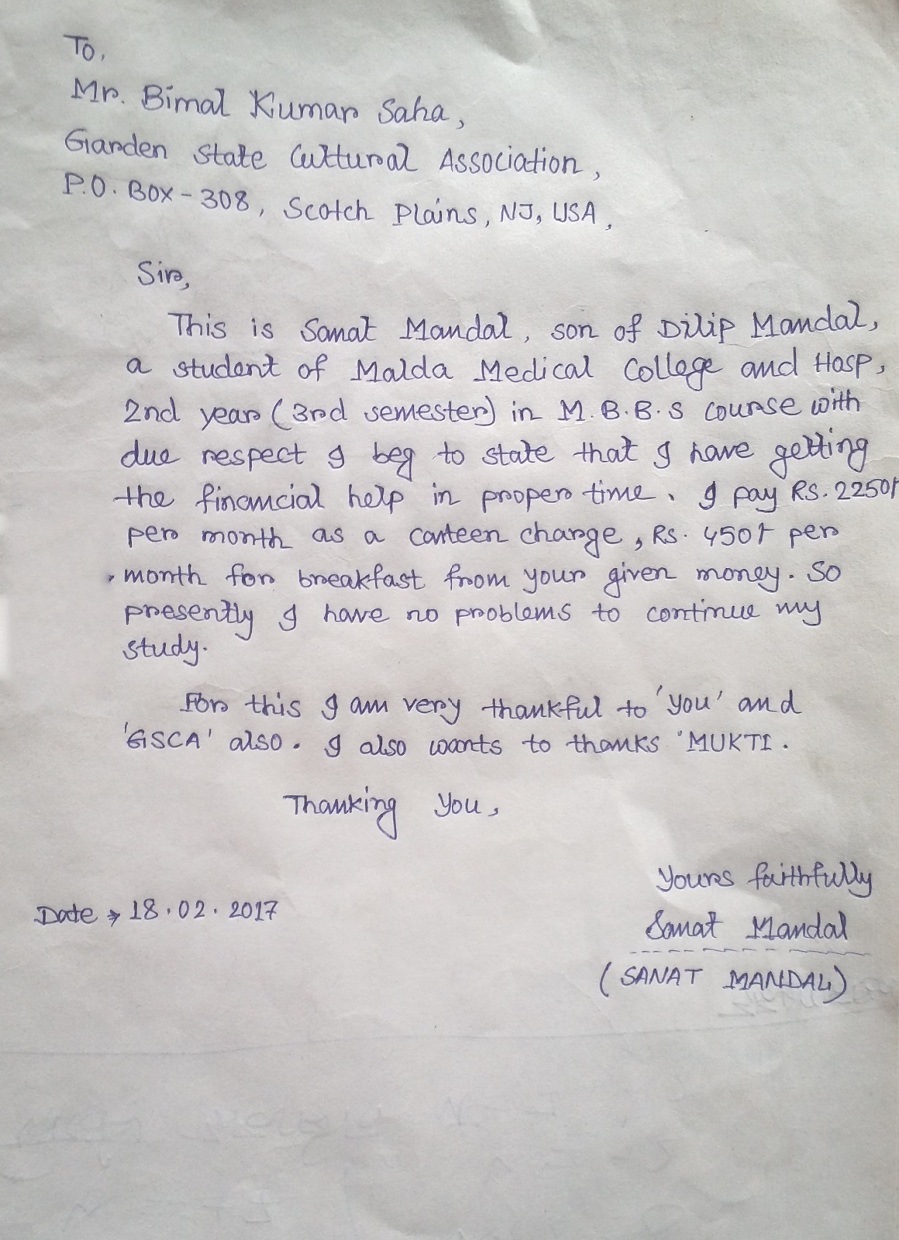 To,
Mr. Bimal Kumar Saha,
Garden State Cultural Association,
P.O. Box - 308, Scotch Plains, NJ, USA,
Sir,
This is Sanat Mandal, son of Dilip Mandal,
a student of Malda Medical College and Hosp,
2nd year (3rd semester) in M.B.B.S course with
due respect I beg to state that I have getting
the financial help in proper time. I pay Rs. 2250/-
per month as a canteen charge, Rs. 450/- per
month for breakfast from your given money. So
presently I have no problems to continue my
study.
For this I am very thankful to 'you' and
'GSCA' also. I also wants to thanks 'MUKTI.
Thanking you,
Yours faithfully
Date → 18.02.2017
Sanat Mandal
(SANAT MANDAL)